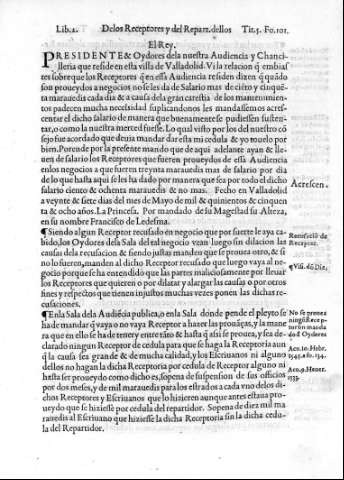 Lib.2. Delos Receptores y del Repart. dellos Tit.5. Fo.101.
El Rey.
PRESIDENTE & Oydores dela nuestra Audiencia y Chanci-
lleria que reside en esta villa de Valladolid. Vi la relacion q̃ embias
tes sobre que los Receptores q̃ en essa Audiencia residen dizen q̃ quãdo
son proueydos a negocios no se les da de Salario mas de ciẽto y cinquẽ
ta marauedis cada dia & a causa dela gran carestia de los mantenimien-
tos padecen mucha necessidad suplicandonos les mandassemos acres-
centar el dicho salario de manera que buenamente se pudiessen susten-
tar, o como la nuestra merced fuesse. Lo qual visto por los del nuestro cõ
sejo fue acordado que deuia mandar dar esta mi cedula & yo touelo por
bien. Porende por la presente mando que de aqui adelante ayan & lle-
uen de salario los Receptores que fueren proueydos de essa Audiencia
enlos negocios a que fueren treynta marauedis mas de salario por dia
de lo que hasta aqui se les ha dado por manera que sea por todo el dicho
salario ciento & ochenta marauedis & no mas. Fecho en Valladolid
a veynte & siete dias del mes de Mayo de mil & quinientos & cinquen
ta & ocho años. La Princesa. Por mandado de su Magestad su Alteza,
en su nombre Francisco de Ledesma.
Acrescen.
¶Siendo algun Receptor recusado en negocio que por suerte le aya ca-
bido, los Oydores dela Sala del tal negocio vean luego sin dilacion las
causas dela recusacion, & siendo justas manden que se prouea otro, & si
no lo fueren, manden al dicho Receptor recusado que luego vaya al ne-
gocio porque se ha entendido que las partes maliciosamente por lleuar
los Receptores que quieren o por dilatar y alargar las causas o por otros
fines y respectos que tienen injustos muchas vezes ponen las dichas re-
cusaciones.
de Receptor.
¶Enla Sala dela Audiẽcia publica, o enla Sala donde pende el pleyto se
ha de mandar q̃ vaya o no vaya Receptor a hazer las prouãças, y la mane
ra que en ello se ha de tener y entretãto & hasta q̃ assi se prouea, y sea de-
clarado ningun Receptor de cedula para que se haga la Receptoria aun
q̃ la causa sea grande & de mucha calidad, y los Escriuanos ni alguno
dellos no hagan la dicha Receptoria por cedula de Receptor alguno ni
hasta ser proueydo como dicho es, sopena de suspension de sus officios
por dos meses, y de mil marauedis para los estrados a cada vno delos di-
chos Receptores y Escriuanos que lo hizieren aunque antes estaua pro-
ueydo que se hiziesse por cedula del repartidor. Sopena de diez mil ma
rauedis al Escriuano que hiziesse la dicha Receptoria sin la dicha cedu-
la del Repartidor.
No se prouea